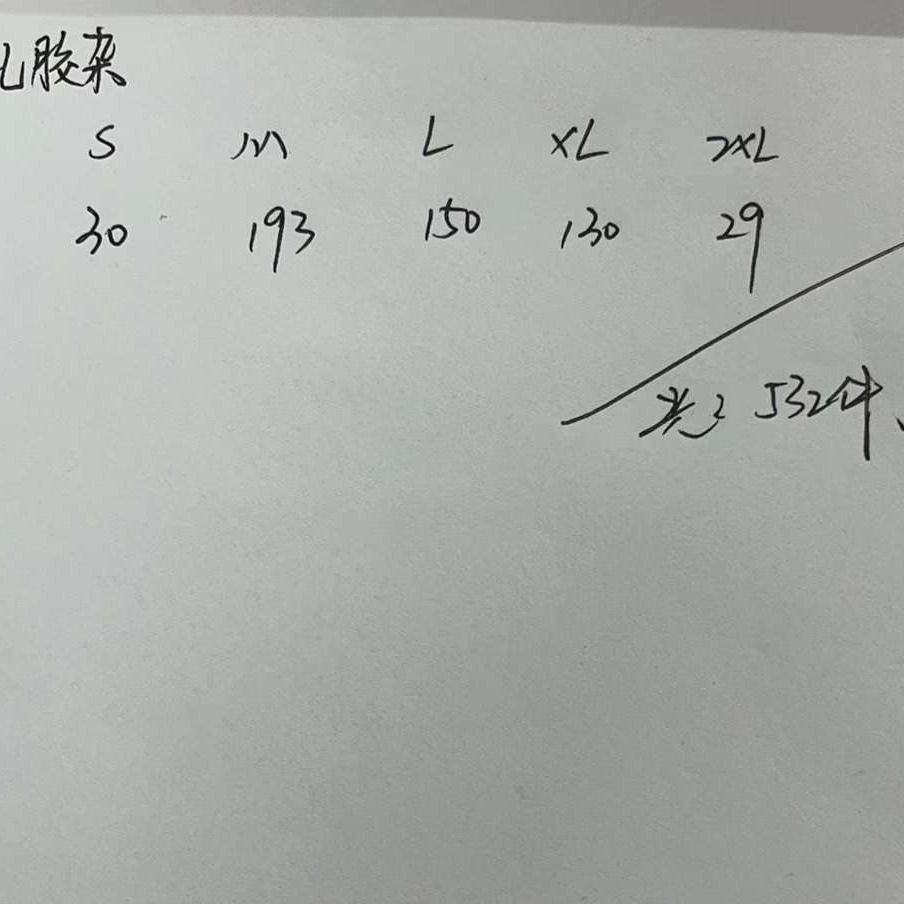 胶杂
S M L XL 2XL
30 193 150 130 29
共 532件